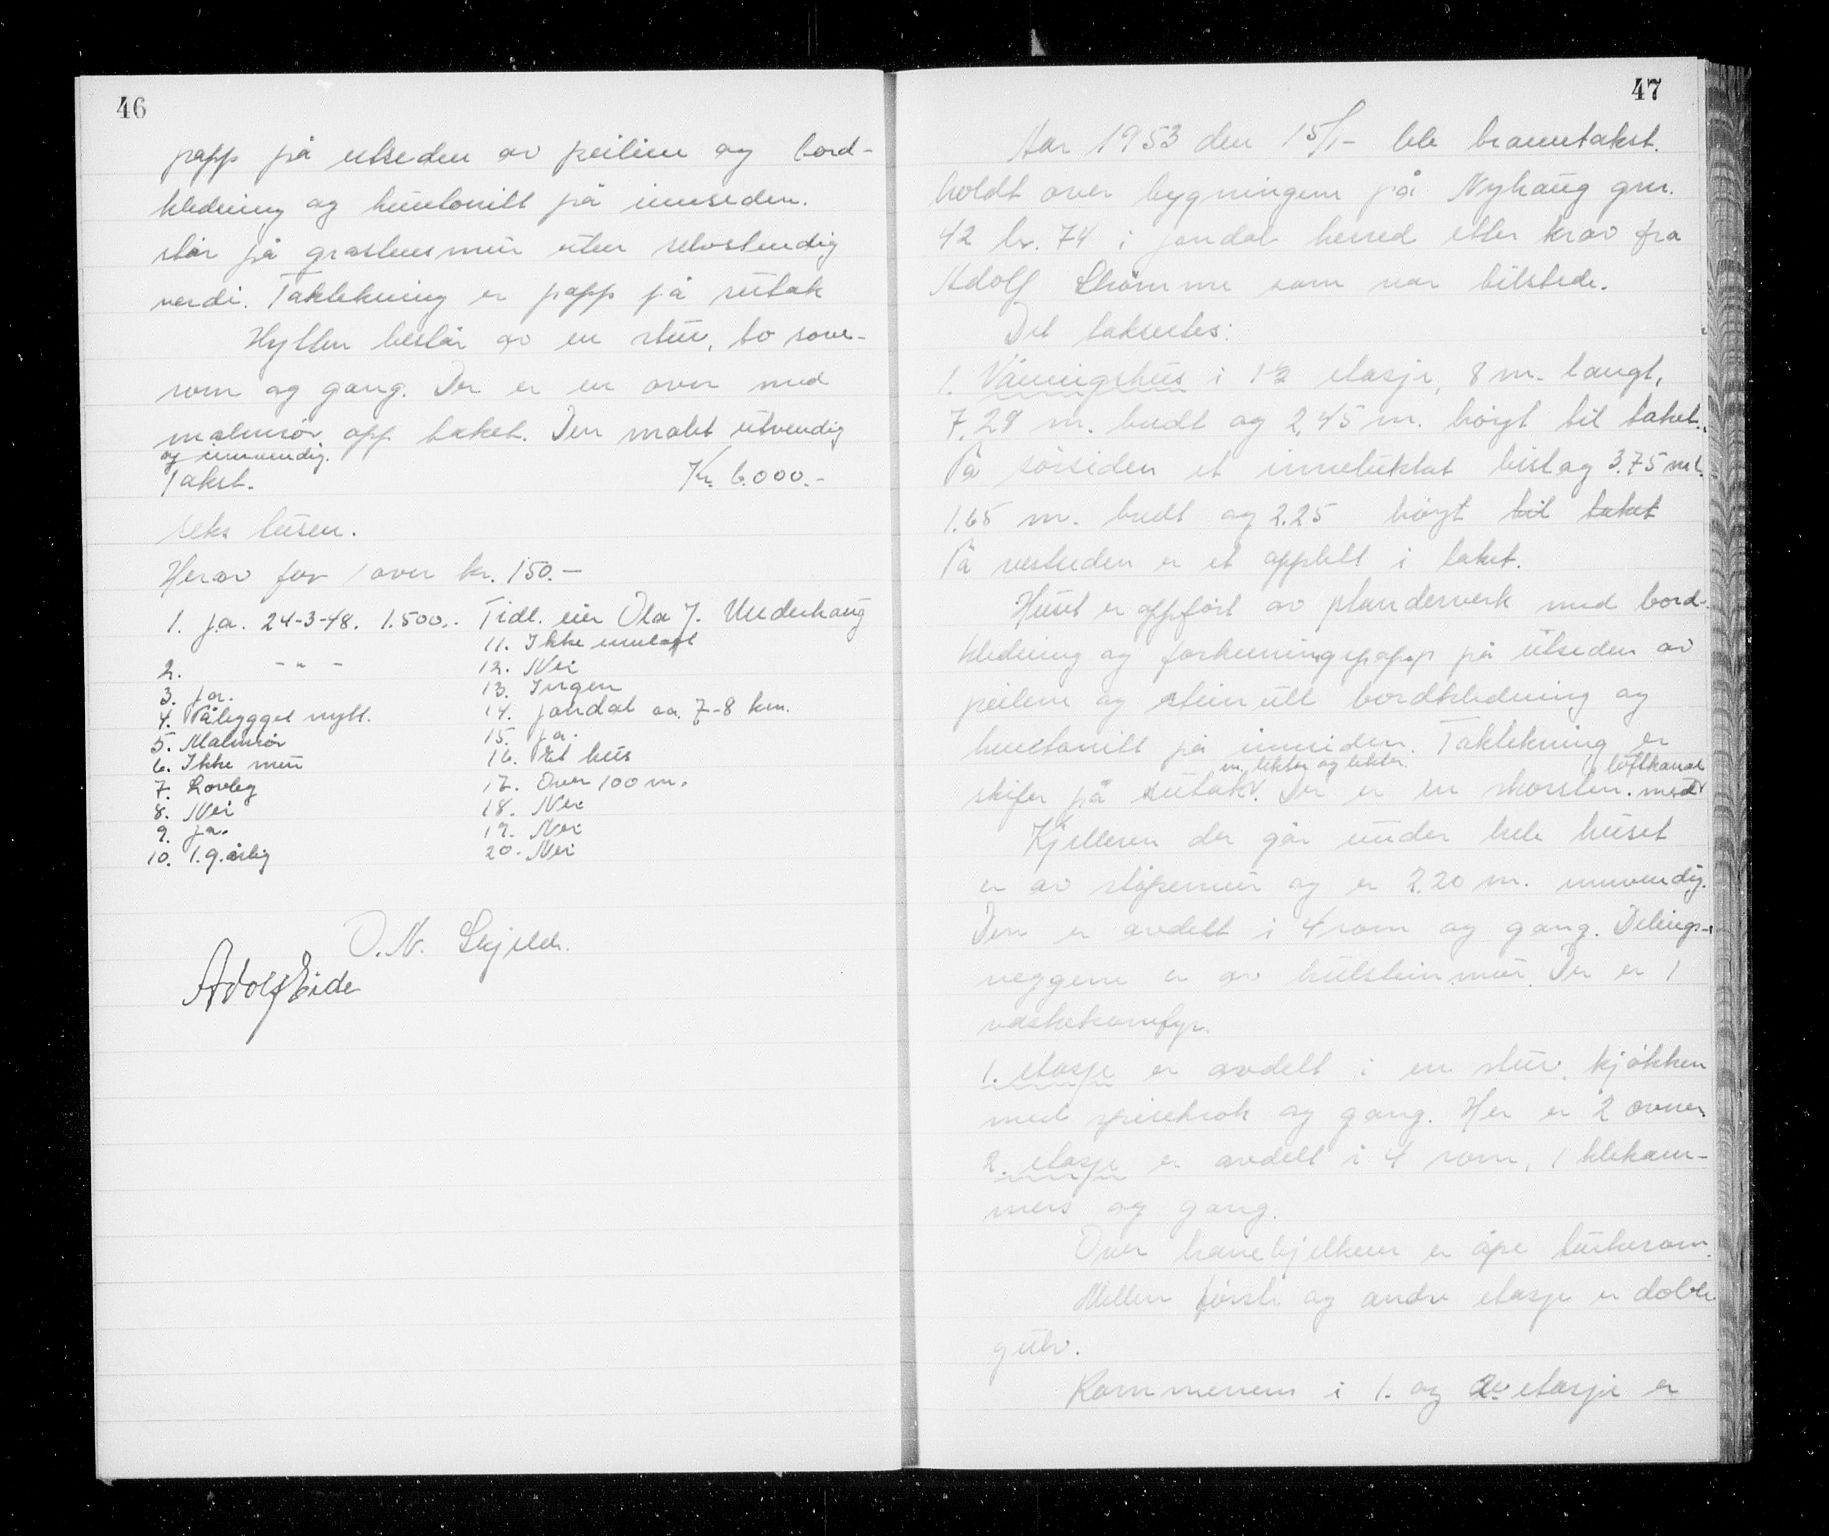 46
papp på utsiden av peilene og bord-
kledning og huntonitt på innsiden.
står på grastensmur uten selvstendig
verdi. Taktekning er papp på sutak
Hytten består av en stue, to sove-
rom og gang. Der er en ovn med
malmrør opp taket. Den malet utvendig
og innvendig.
Takst. Kr. 6.000.-
seks tusen.
Herav for 1 ovn kr. 150.-
1. Ja. 24-3-48. 1.500.- Tidl. eier Ola J. Underhaug
2. - " -
3. Ja.
4. Påbygget nytt.
5. Malmrør
6. Ikke mur
7. Lovleg
8. Nei
9. Ja.
10. 1.g. årlig
11. Ikke innlagt
12. Nei
13. Ingen
14. Jondal ca. 7-8 km.
15. Ja.
16. Et hus
17. Over 100 m.
18. Nei
19. Nei
20. Nei
O. N. Skjelde.
Adolf Eide
47
Aar 1953 den 15/1- ble branntakst.
holdt over bygningene på Nyhaug gnr.
42 br. 74 i Jondal herred etter krav fra
Adolf Strømme som var tilstede.
Det takseertes:
1. Våningshus i 1½ etasje, 8 m. langt,
7,28 m. bredt og 2,45 m. høigt til taket.
På sørsiden et innelukket bislag 3.75 m l.
1.65 m. bredt og 2.25 høigt til taket
På vestsiden er et opplett i taket.
Huset er oppført av plandeverk med bord-
kledning og forhudningspapp på utsiden av
peilene og steinull bordkledning og
huntonitt på innsiden. Taktekning er
m. lekter og lekter. luftkanal
skifer på sutak. Der er en skorsten. med
Kjelleren der går under hele huset
er av støpemur og er 2.20 m. innvendig.
Den er avdelt i 4 rom og gang. Delings-
veggene er av hulsteinmur. Der er 1
vaskekomfyr.
1. etasje er avdelt i en stue, kjøkken
med spisekrok og gang. Her er 2 ovner
2. etasje er avdelt i 4 rom, 1 klekam-
mers og gang.
Over hanebjelken er åpe tørkerom.
Mellen første og andre etasje er doble
gulv.
Rommenem i 1. og 2. etasje er